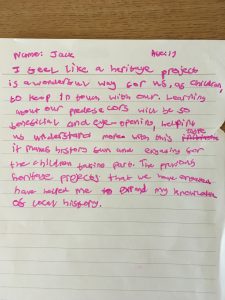 Name: Jack Age: 11
I feel like a heritage project
is a wonderful way for us, as children,
to keep in touch with our. Learning
about our predecessors will be so
beneficial and eye-opening, helping
us understand more with this taste
it makes history fun and engaging for
the children taking part. The previous
heritage projects that we have created
have helped me to expand my knowledge
of local history.